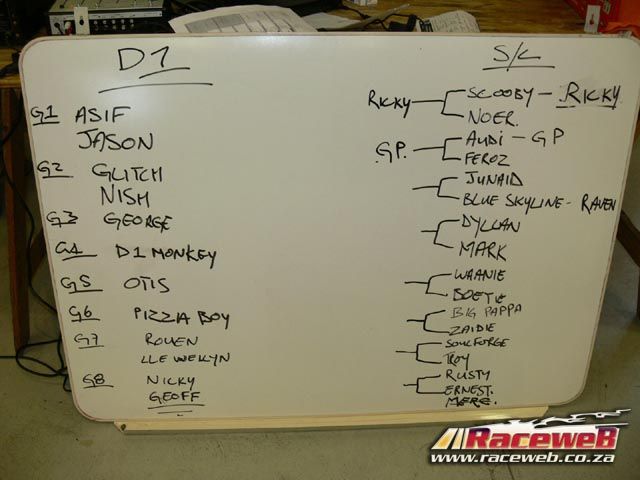 D1
G1 ASIF
JASON
G2 GLITCH
NISH
G3 GEORGE
G4 D1 MONKEY
G5 OTIS
G6 PIZZIA BOY
G7 ROUEN
LLEWEKYN
G8 NICKY
GEOFF
S/C
RICKY SCOOBY - RICKY
NOER.
GP. AUDI - GP
FEROZ
JUNAID
BLUE SKYLINE - RAVEN
DYLLAN
MARK
WAANIE
BOETIE
BIG PAPPA
ZAIDIE
SOULFORGE
TROY
RUSTY
ERNEST.
MERE.
RACEWEB
www.raceweb.co.za